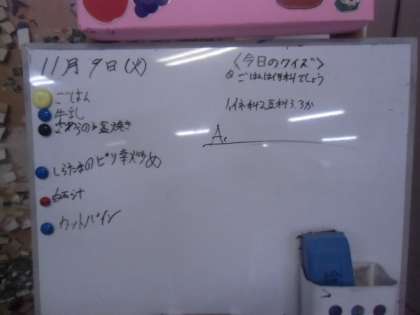 11月9日(火)
ごはん
牛乳
さわらの塩焼き
しらたきのピリ辛炒め
カットパイン
〈今日のクイズ〉
Q ごはんは何科でしょう
1イネ科 2豆科 3.
A.